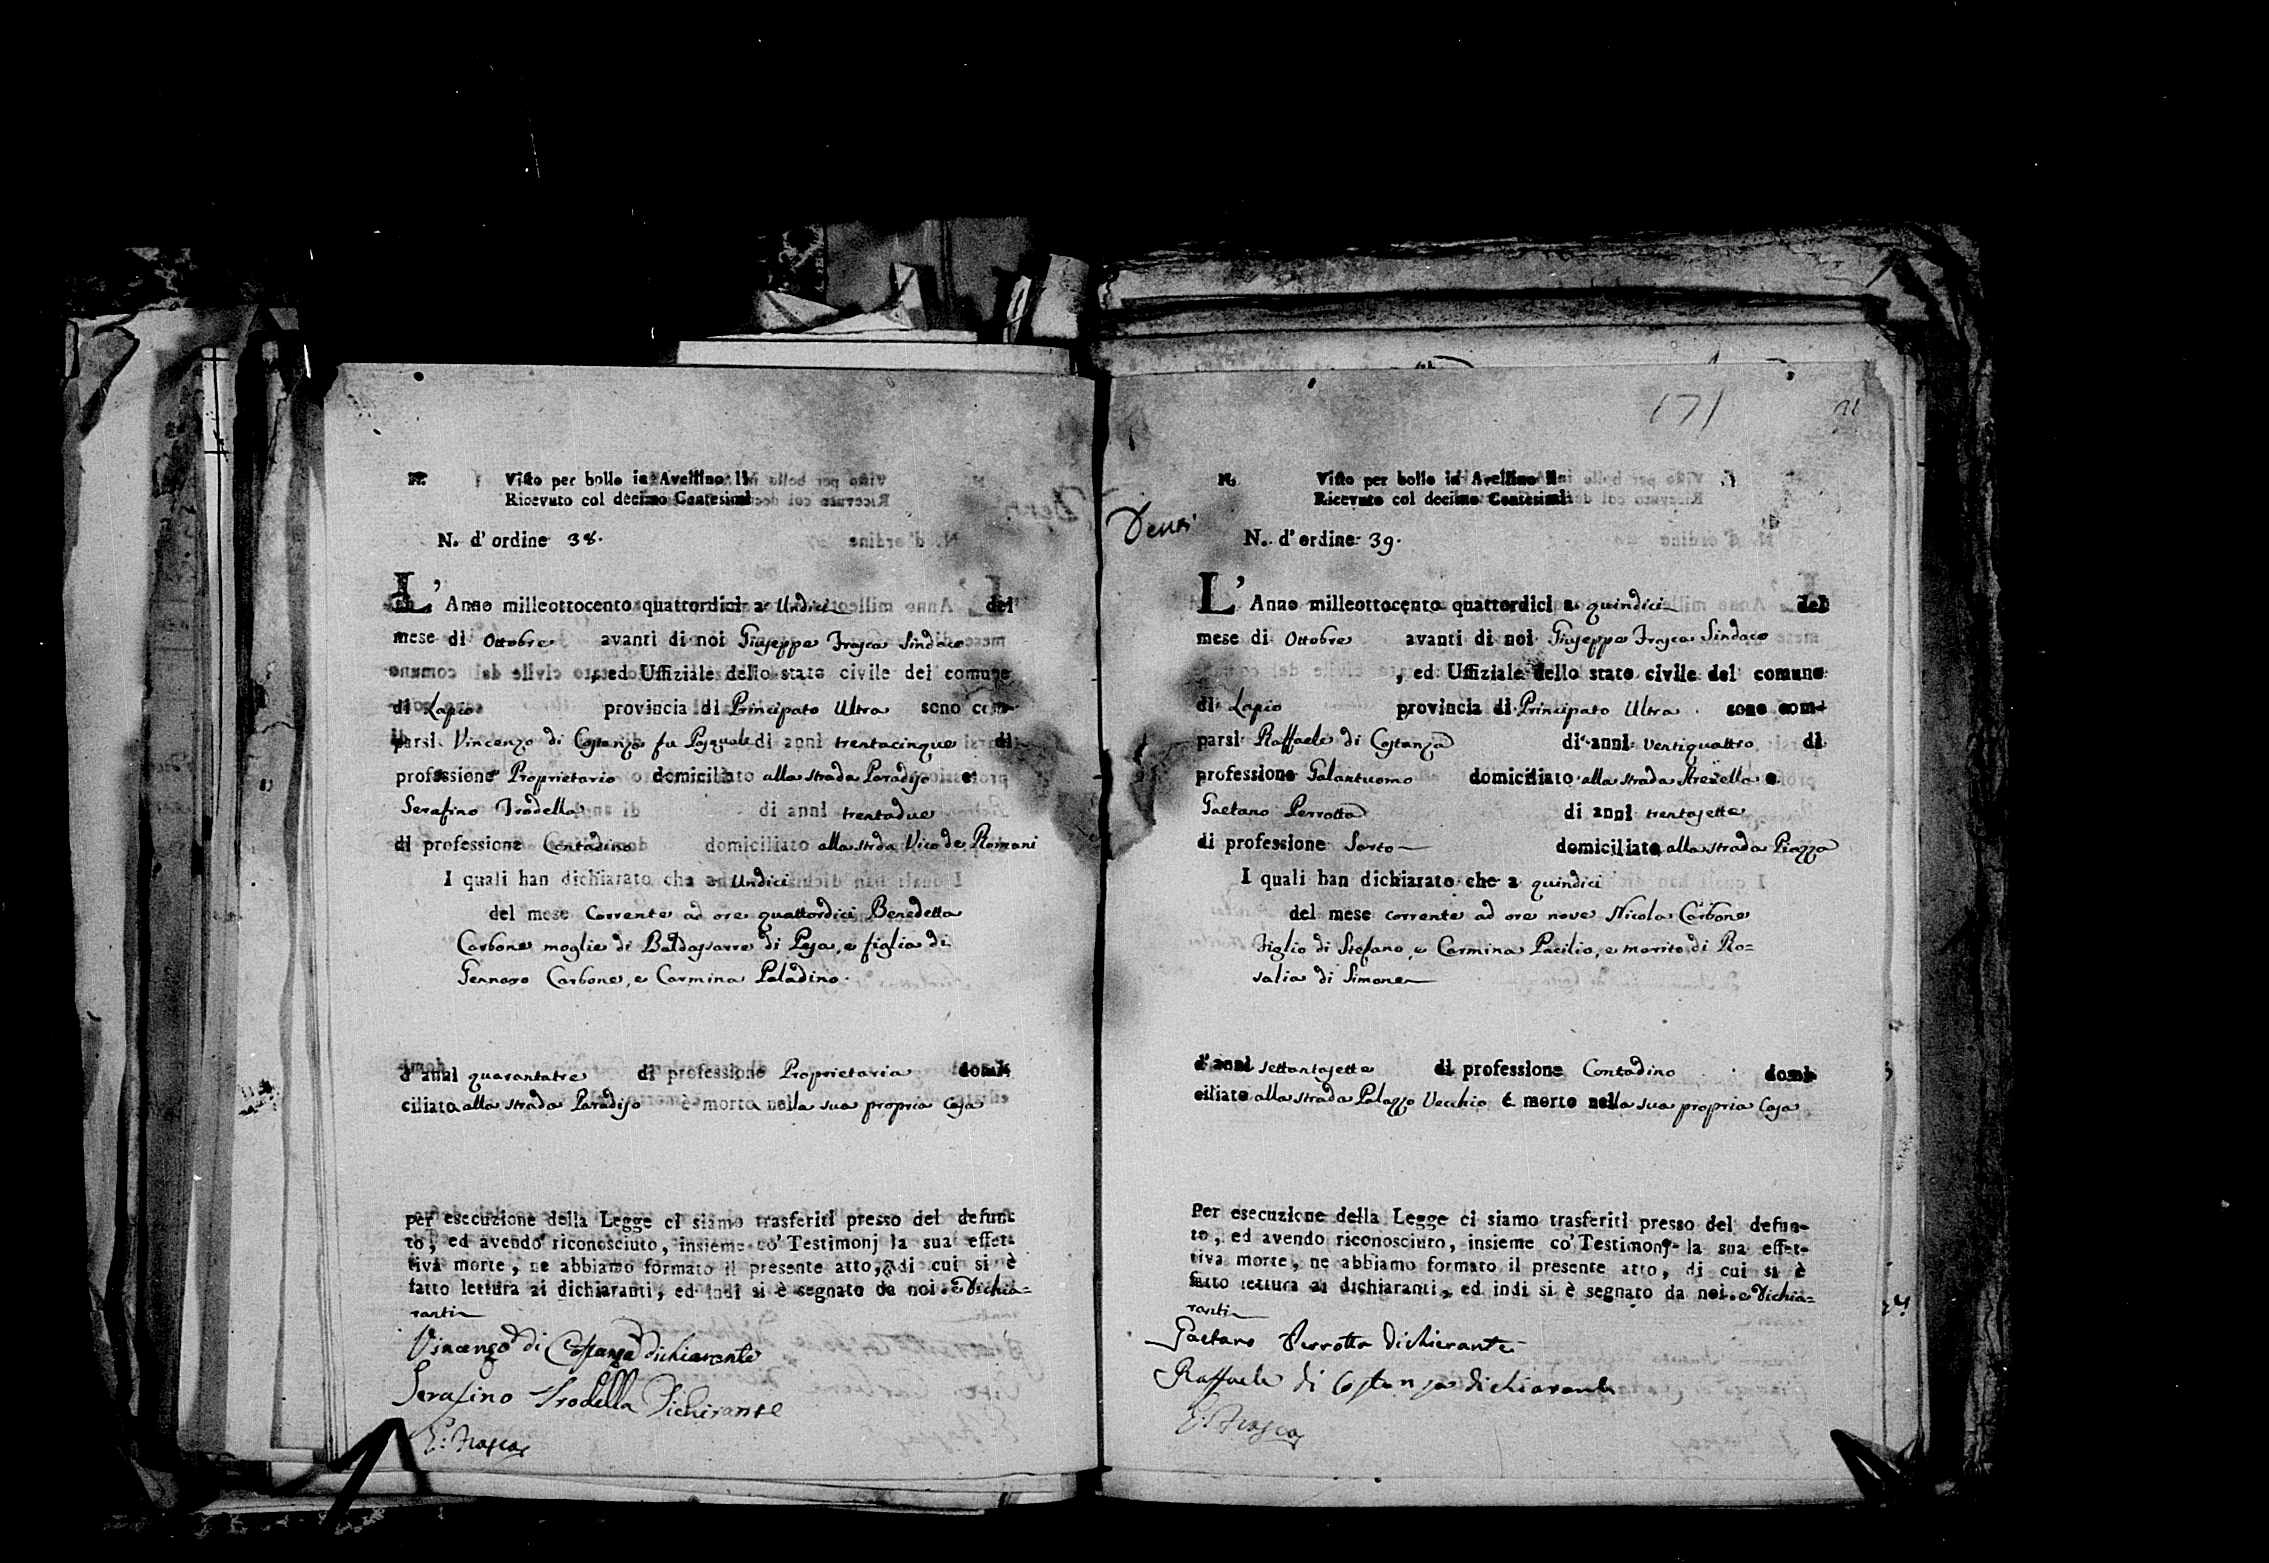 N.
Visto per bollo in Avellino li
Ricevuto col decimo Centesimi
N. d'ordine 38.
L'Anno milleottocento quattordici a Undici del
mese di Ottobre avanti di noi Giuseppe Frasca Sindaco
, ed Uffiziale dello stato civile del comune
di Lapio provincia di Principato Ultra sono com-
parsi Vincenzo di Costanzo fu Pasquale di anni trentacinque di
professione Proprietario domiciliato alla strada Paradiso e
Serafino Trodella di anni trentadue
di professione Contadino domiciliato alla strda Vico de Romani
I quali han dichiarato che a Undici
del mese corrente ad ore quattordici Benedetta
Carbone moglie di Baldassarre di Pesa, e figlia di
Gennaro Carbone, e Carmina Paladino.
d'anni quarantatre di professione Proprietaria domi-
ciliato alla strada Paradiso è morta nella sua propria Casa
per esecuzione della Legge ci siamo trasferiti presso del defunt
to, ed avendo riconosciuto, insieme co' Testimonj la sua effet-
tiva morte, ne abbiamo formato il presente atto, di cui si è
fatto lettura ai dichiaranti, ed indi si è segnato da noi. e Dichia=
ranti
Vincenzo di Costanza dichiarante
Serafino Trodella Dichirante
G: Frasca
171
Visto per bollo in Avellino li
Ricevuto col decimo Centesimi
N. d'ordine 39.
L'Anno milleottocento quattordici a quindici del
mese di Ottobre avanti di noi Giuseppe Frasca Sindaco
, ed Uffiziale dello stato civile del comune
di Lapio provincia di Principato Ultra sono com-
parsi Raffaele di Costanza di anni Ventiquattro di
professione Galantuomo domiciliato alla strada Strezella e
Gaetano Perrotta di anni trentasette
di professione Sarto domiciliato alla strada Piazza
I quali han dichiarato che a quindici
del mese corrente ad ore nove Nicola Carbone
Figlio di Stefano, e Carmina Pacilio, e marito di Ro=
salia di Simone
d'anni settantasette di professione Contadino domi-
ciliato alla strada Palazzo Vecchio è morto nella sua propria Casa
Per esecuzione della Legge ci siamo trasferiti presso del defun-
to, ed avendo riconosciuto, insieme co' Testimonj la sua effet-
tiva morte, ne abbiamo formato il presente atto, di cui si è
fatto lettura ai dichiaranti, ed indi si è segnato da noi. e Dichia=
ranti
Gaetano Perrotta dichierante
Raffaele di Costanza dichiarante
G: Frasca